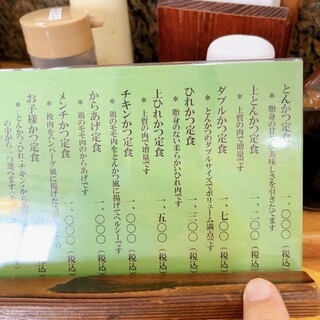 とんかつ定食 一、〇〇〇（税込）
＊ 脂身の甘さと美味しさを引きたてます
上とんかつ定食
＊ 上質の肉で増量です
ダブルかつ定食 一、七〇〇（税込）
＊ とんかつのダブルサイズでボリューム満点です
ひれかつ定食 一、二〇〇（税込）
＊ 脂身のない柔らかいひれ肉です
上ひれかつ定食 一、五〇〇（税込）
＊ 上質の肉で増量です
チキンかつ定食 一、〇〇〇（税込）
＊ 鶏のモモ肉をとんかつ風に揚げてヘルシーです
からあげ定食 一、〇〇〇（税込）
＊ 鶏のモモ肉のからあげです
メンチかつ定食 一、〇〇〇（税込）
＊ 挽肉をハンバーグ風に揚げた
お子様かつ定食
＊ とんかつ・ひれ・チキン・から
の中から一つ選べます